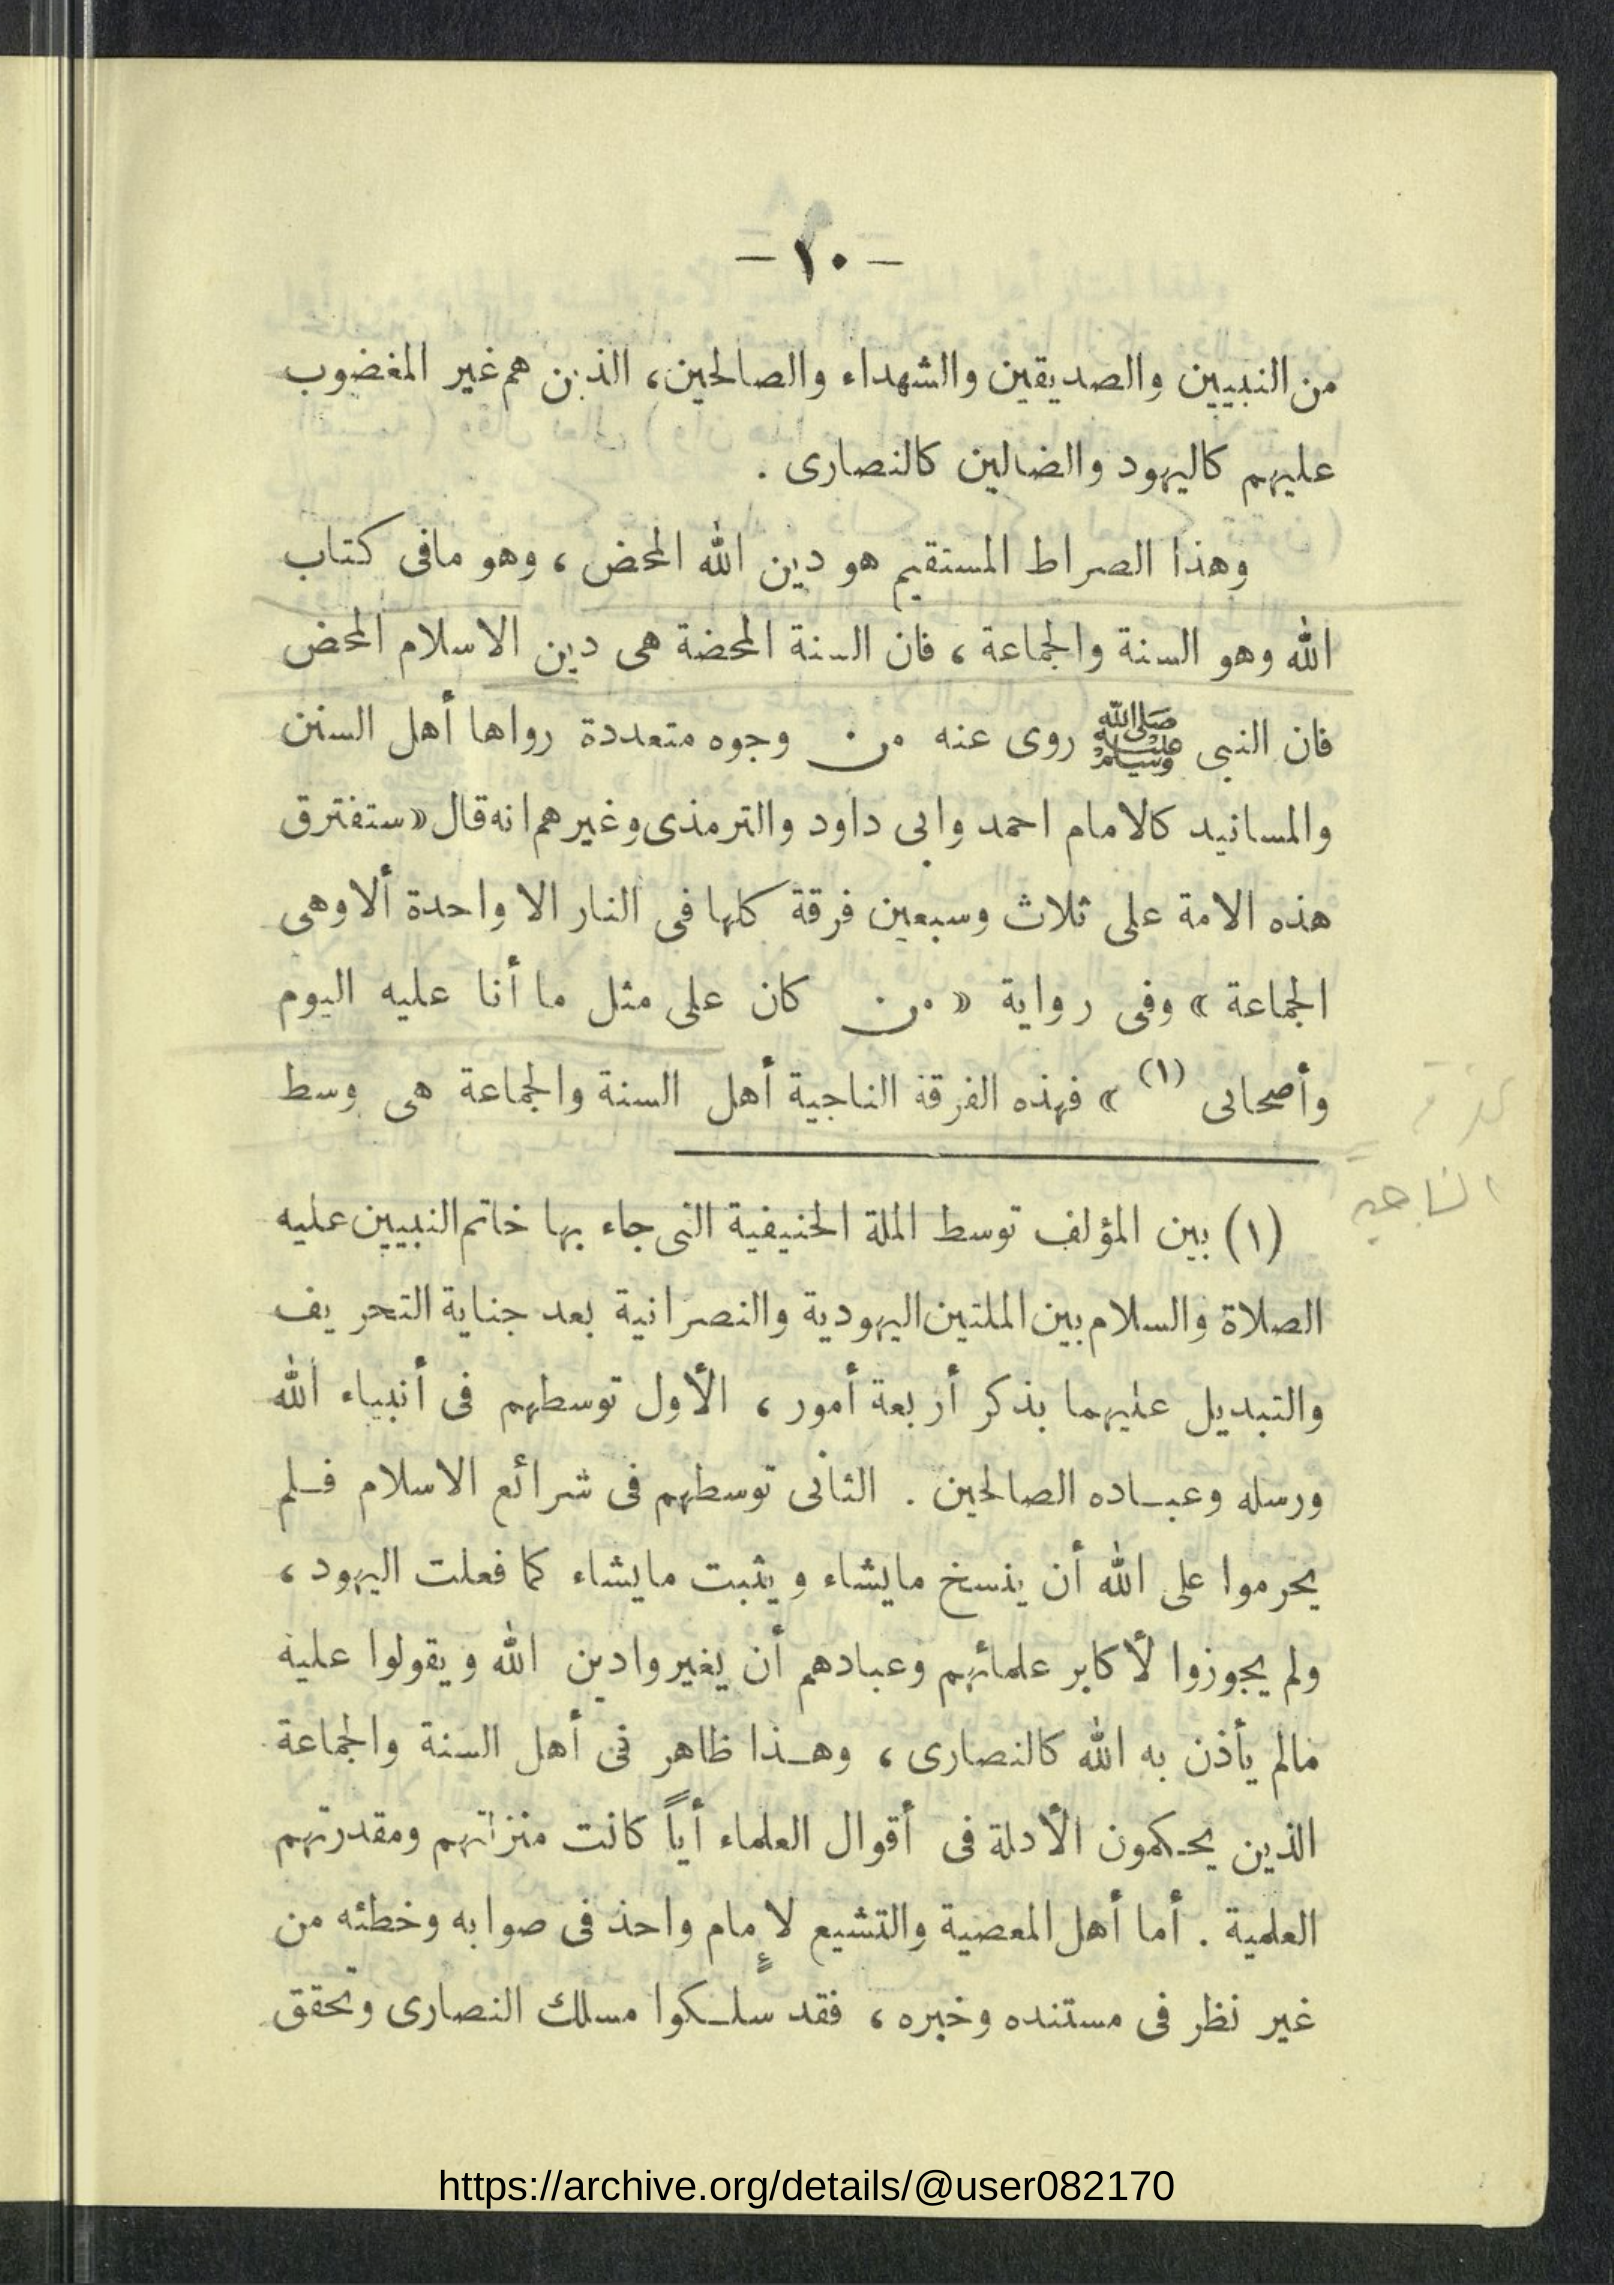 - ١٠ -
من النبيين والصديقين والشهداء والصالحين، الذين هم غير المغضوب
عليهم كاليهود والضالين كالنصارى .
وهذا الصراط المستقيم هو دين الله المحض ، وهو مافى كتاب
الله وهو السنة والجماعة ، فان السنة المحضة هى دين الاسلام المحض
فان النبى ﷺ روى عنه من وجوه متعددة رواها أهل السنن
والمسانيد كالامام احمد وابى داود والترمذى وغيرهم انه قال « ستفترق
هذه الامة على ثلاث وسبعين فرقة كلها فى النار الا واحدة ألا وهى
الجماعة » وفى رواية « من كان على مثل ما أنا عليه اليوم
وأصحابى (١) » فهذه الفرقة الناجية أهل السنة والجماعة هى وسط
الناجية
(١) بين المؤلف توسط الملة الحنيفية التى جاء بها خاتم النبيين عليه
الصلاة والسلام بين الملتين اليهودية والنصرانية بعد جناية التحريف
والتبديل عليهما بذكر أربعة أمور ، الأول توسطهم فى أنبياء الله
ورسله وعباده الصالحين . الثانى توسطهم فى شرائع الاسلام فلم
يحرموا على الله أن ينسخ مايشاء ويثبت مايشاء كما فعلت اليهود ،
ولم يجوزوا لأكابر علمائهم وعبادهم أن يغيروا دين الله ويقولوا عليه
مالم يأذن به الله كالنصارى ، وهذا ظاهر فى أهل السنة والجماعة
الذين يحكمون الأدلة فى أقوال العلماء أياً كانت منزلتهم ومقدرتهم
العلمية . أما أهل المعصية والتشيع لإمام واحد فى صوابه وخطئه من
غير نظر فى مستنده وخبره ، فقد سلكوا مسلك النصارى وتحقق
https://archive.org/details/@user082170